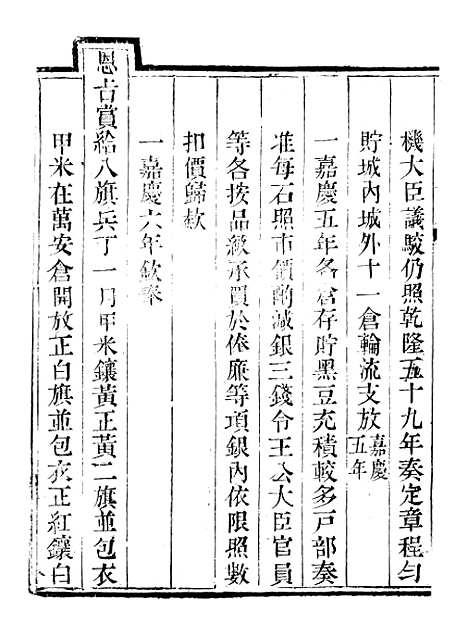 機大臣議駁仍照乾隆五十九年奏定章程勻
貯城內城外十一倉輪流支放嘉慶五年
一嘉慶五年各倉存貯黑豆充積較多戶部奏
准每石照市價酌減銀三錢令王公大臣官員
等各按品級承買於俸廉等項銀內依限照數
扣價歸款
一嘉慶六年欽奉
恩旨賞給八旗兵丁一月甲米鑲黃正黃二旗並包衣
甲米在萬安倉開放正白旗並包衣正紅鑲白